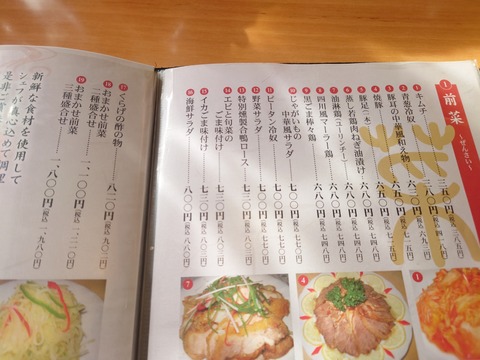 1 前菜 〜ぜんさい〜
1 キムチ 三五〇円(税込 三八五円)
2 青葱冷奴
3 豚耳の中華風和え物
4 焼豚
5 豚足(一本)
6 蒸し若鶏肉ねぎ油漬け 六八〇円(税込 七四八円)
7 油淋鶏(ユーリンチー) 六八〇円(税込 七四八円)
8 四川風マーラー鶏 六八〇円(税込 七四八円)
9 黒ごま棒々鶏 六八〇円(税込 七四八円)
10 じゃがいもの
中華風サラダ 七〇〇円(税込 七七〇円)
11 ピータン冷奴 七〇〇円(税込 七七〇円)
12 野菜サラダ 七〇〇円(税込 七七〇円)
13 特別燻製合鴨ロース 七三〇円(税込 八〇三円)
14 エビと旬菜の
ごま味付け 七三〇円(税込 八〇三円)
15 イカごま味付け 七三〇円(税込 八〇三円)
16 海鮮サラダ 八〇〇円(税込 八八〇円)
17 くらげの酢の物 八二〇円(税込 九〇二円)
18 おまかせ前菜
二種盛合せ 一、一〇〇円(税込 一、二一〇円)
19 おまかせ前菜
三種盛合せ 一、八〇〇円(税込 一、九八〇円)
新鮮な食材を使用して
シェフが真心込めて調理
是非ご賞
7
4
1